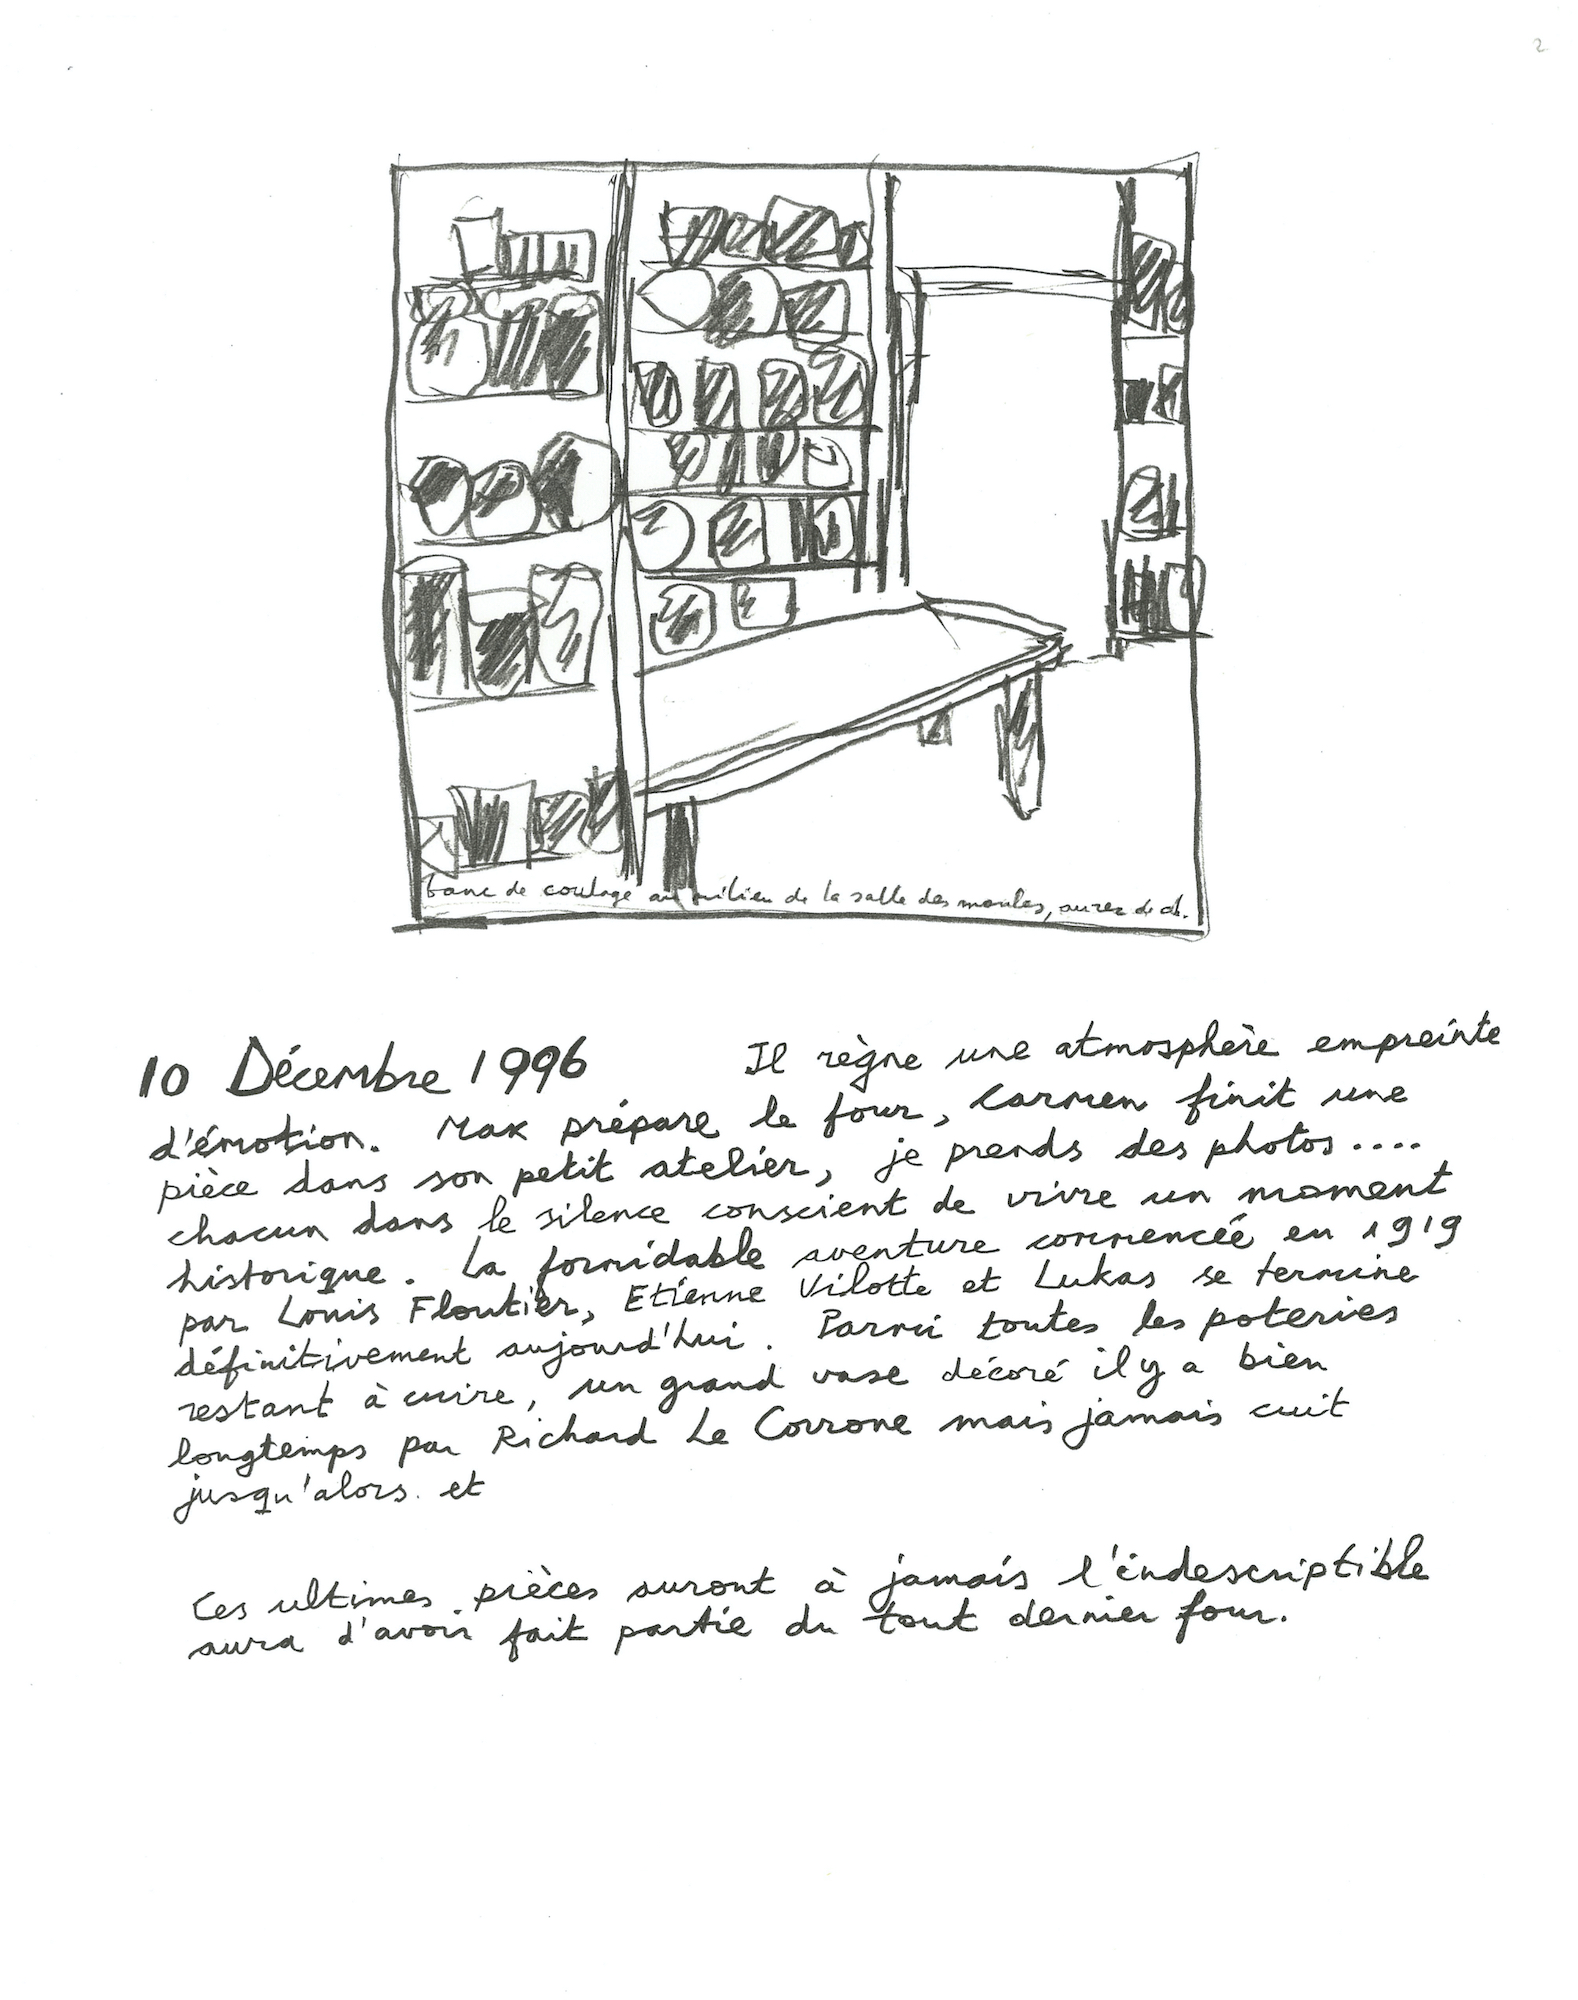 2
banc de coulage au milieu de la salle des moules, au rez de ch.
10 Décembre 1996 Il règne une atmosphère empreinte
d'émotion. Max prépare le four, Carmen finit une
pièce dans son petit atelier, je prends des photos....
chacun dans le silence conscient de vivre un moment
historique. La formidable aventure commencée en 1919
par Louis Floutier, Etienne Vilotte et Lukas se termine
définitivement aujourd'hui. Parmi toutes les poteries
restant à cuire, un grand vase décoré il y a bien
longtemps par Richard Le Corrone mais jamais cuit
jusqu'alors. et
Ces ultimes pièces auront à jamais l'indescriptible
aura d'avoir fait partie du tout dernier four.